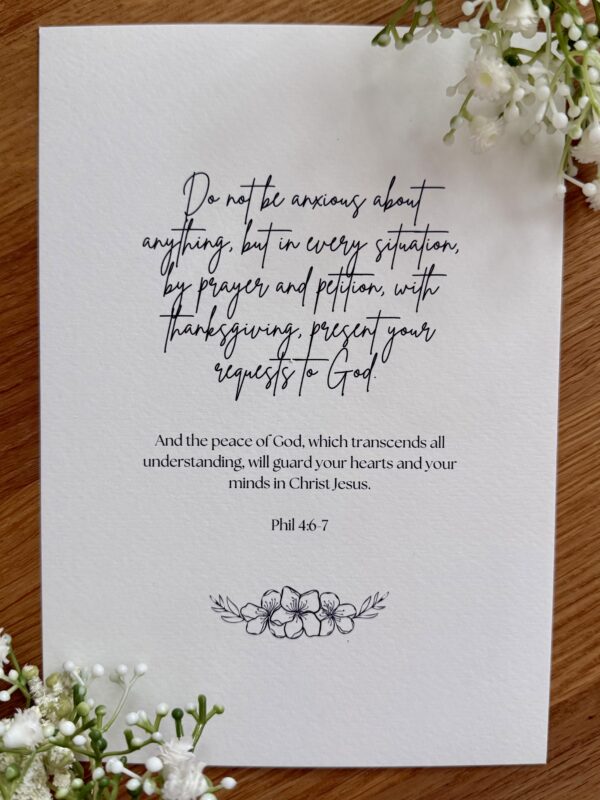 Do not be anxious about
anything, but in every situation,
by prayer and petition, with
thanksgiving, present your
requests to God.
And the peace of God, which transcends all
understanding, will guard your hearts and your
minds in Christ Jesus.
Phil 4:6-7